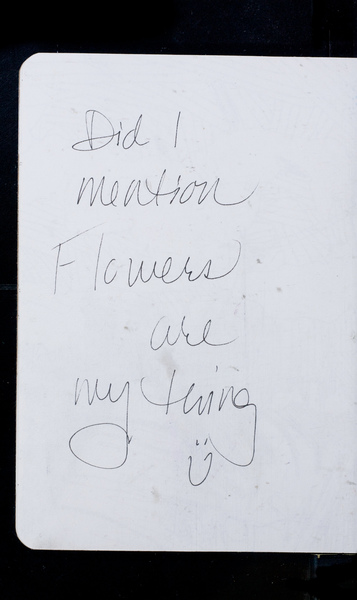 Did I
mention
Flowers
are
my thing